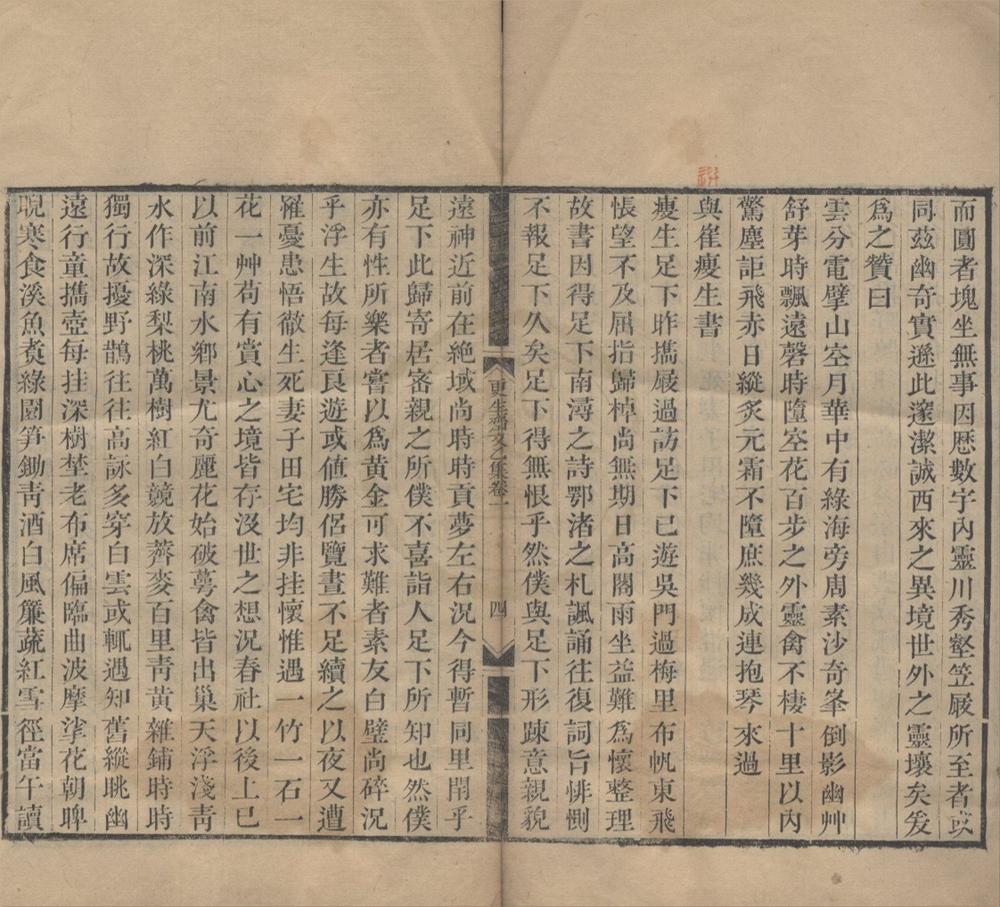 而圓者塊坐無事因歴數宇內靈川秀壑笠屐所至者或
同茲幽奇實遜此邃潔誠西來之異境世外之靈壤矣爰
爲之贊曰
雲分電擘山空月華中有綠海旁周素沙奇峯倒影幽艸
舒芽時飄遠磬時墮空花百步之外靈禽不棲十里以內
驚塵詎飛赤日縱炙元霜不墮庶幾成連抱琴來過
與崔瘦生書
瘦生足下昨攜嚴過訪足下已遊吳門過梅里布帆東飛
悵望不及屈指歸棹尚無期日高閣雨坐益難爲懷整理
故書因得足下南潯之詩鄂渚之札諷誦往復詞旨悱惻
不報足下久矣足下得無恨乎然僕與足下形踈意親貌
更生齋文乙集卷一
四
遠神近前在絶域尚時時貢夢左右況今得暫同里閈乎
足下此歸寄居密親之所僕不喜詣人足下所知也然僕
亦有性所樂者嘗以爲黃金可求難者素友白璧尚碎況
乎浮生故每逢良遊或値勝侶覽晝不足續之以夜又遭
罹憂患悟徹生死妻子田宅均非挂懷惟遇一竹一石一
花一艸苟有賞心之境皆存沒世之想況春社以後上巳
以前江南水鄉景尤奇麗花始破萼禽皆出巢天浮淺靑
水作深綠梨桃萬樹紅白競放薺麥百里靑黃雜鋪時時
獨行故擾野鵲往往高詠多穿白雲或輒遇知舊縱眺幽
遠行童攜壺每挂深樹埜老布席偏臨曲波摩挲花朝睥
睨寒食溪魚煑綠園笋鋤靑酒白風簾蔬紅雪徑當午讀